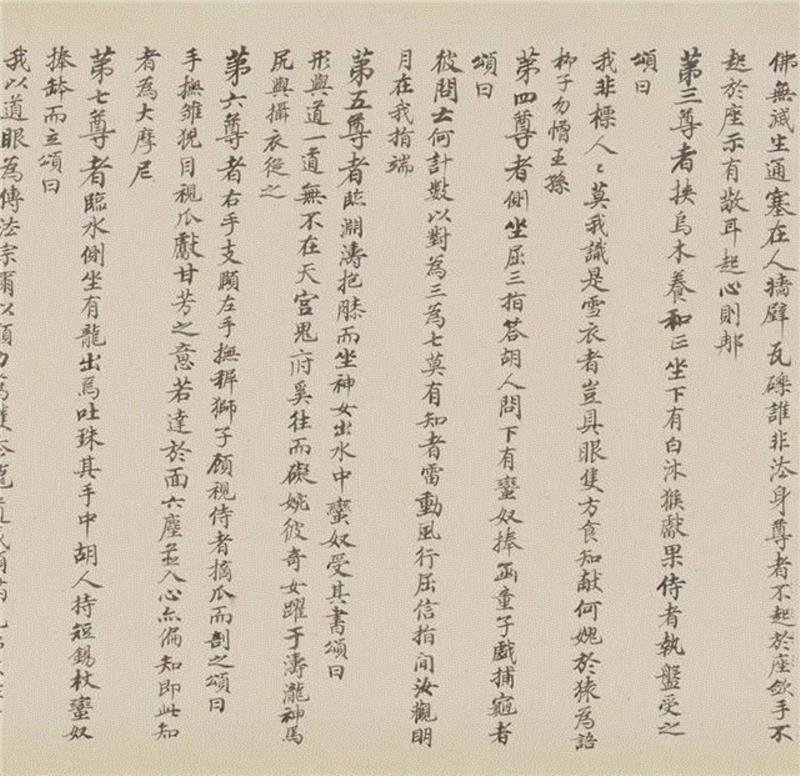 佛無滅生通塞在人墻壁瓦礫誰非法身尊者不起於座歛手不
起於座示有敬耳起心則那
第三尊者挾烏木養和正坐下有白沐猴獻果侍者執盤受之
頌曰
我非標人〻莫我識是雪衣者豈具眼隻方食知献何媿於猿為語
柳子勿憎王孫
第四尊者側坐屈三指答胡人問下有蠻奴捧函童子戲捕龜者
頌曰
彼問士何計數以對為三為七莫有知者雷動風行屈信指間汝觀明
月在我指端
第五尊者臨淵濤抱膝而坐神女出水中蠻奴受其書頌曰
形與道一道無不在天宮鬼府奚往而礙婉彼奇女躍于濤瀧神馬
尻輿攝衣從之
第六尊者右手支頤左手撫稺獅子顧視侍者摘瓜而剖之頌曰
手撫雛猊目視瓜獻甘芳之意若達於面六塵並入心亦徧知即此知
者為大摩尼
第七尊者臨水側坐有龍出焉吐珠其手中胡人持短錫杖蠻奴
捧鉢而立頌曰
我以道眼為傳法宗爾以願力為護法龍道成願滿見佛